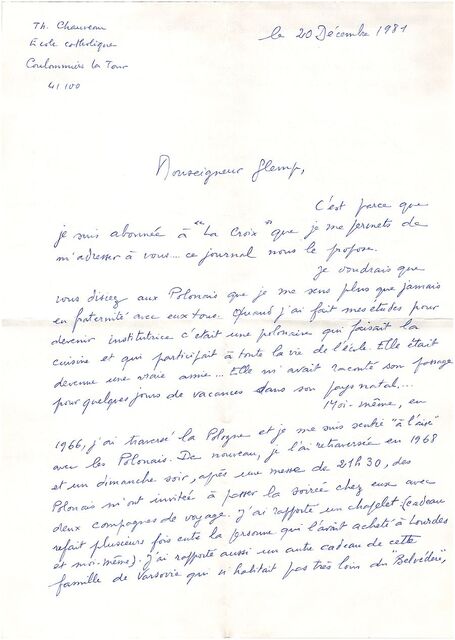 Th. Chauveau
Ecole catholique
Coulommiers la Tour
41100
le 20 Décembre 1981
Monseigneur Glemp,
C'est parce que
je suis abonnée à "La Croix" que je me permets de
m'adresser à vous... ce journal nous le propose.
Je voudrais que
vous disiez aux Polonais que je me sens plus que jamais
en fraternité avec eux tous. Quand j'ai fait mes études pour
devenir institutrice c'était une polonaise qui faisait la
cuisine et qui participait à toute la vie de l'école. Elle était
devenue une vraie amie... Elle m'avait raconté son passage
pour quelques jours de vacances dans son pays natal...
Moi-même, en
1966, j'ai traversé la Pologne et je me suis sentie "à l'aise"
avec les Polonais. De nouveau, je l'ai retraversée en 1968
et un dimanche soir, après une messe de 21h30, des
Polonais m'ont invitée à passer la soirée chez eux avec
deux compagnes de voyage. J'ai rapporté un chapelet (cadeau
refait plusieurs fois entre la personne qui l'avait acheté à Lourdes
et moi-même). J'ai rapporté aussi un autre cadeau de cette
famille de Varsovie qui n'habitait pas très loin du "Belvédère",